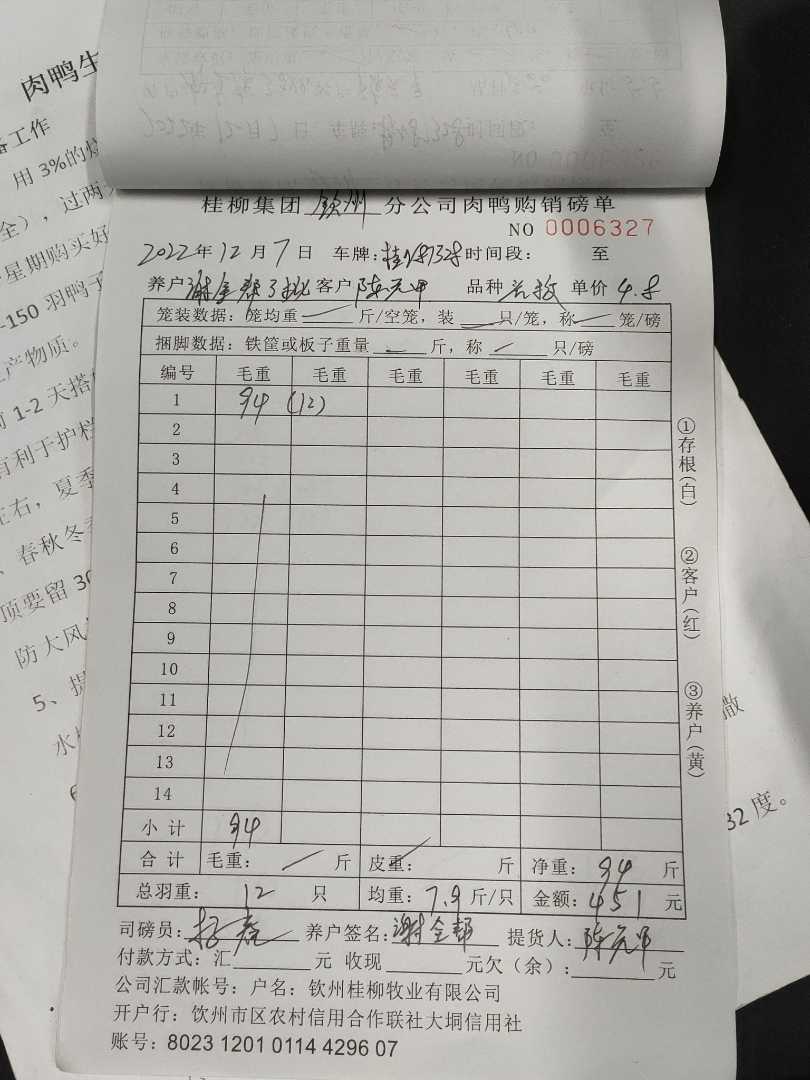 肉鸭生
备工作
用3%的烧
全），过两
星期购买好
-150羽鸭子
生产物质。
前1-2天搭
有利于护栏
左右，夏季
、春秋冬季
顶要留30
防大风
5、提
水
撒
32度。
桂柳集团 钦州 分公司肉鸭购销磅单
NO 0006327
2022年12月7日 车牌: 时间段： 至
养户 谢全帮 客户 陈元甲 品种 单价 4.8
笼装数据：笼均重 斤/空笼，装 只/笼，称 笼/磅
捆脚数据：铁筐或板子重量 斤，称 只/磅
编号 毛重 毛重 毛重 毛重 毛重 毛重
1 94 (12)
2
3
4
5
6
7
8
9
10
11
12
13
14
小计 94
合计 毛重： 斤 皮重： 斤 净重： 94 斤
总羽重： 12 只 均重：7.9斤/只 金额：451元
①存根(白)
②客户(红)
③养户(黄)
司磅员: 养户签名:谢全帮 提货人:陈元甲
付款方式：汇 元 收现 元欠（余）： 元
公司汇款帐号：户名：钦州桂柳牧业有限公司
开户行：钦州市区农村信用合作联社大垌信用社
账号：8023 1201 0114 4296 07